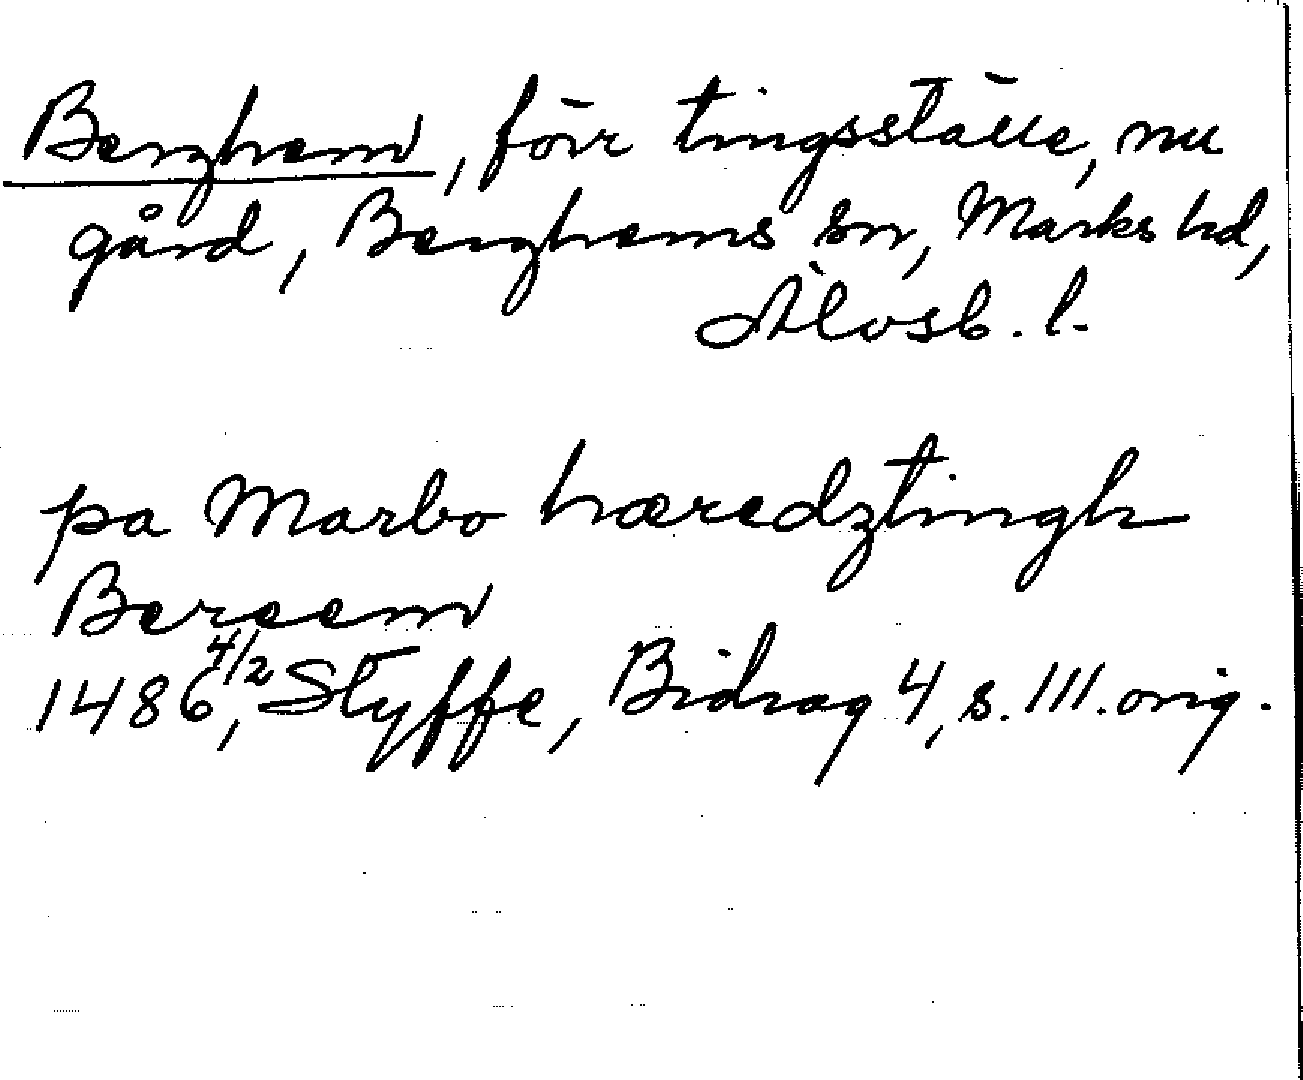 Berghem, förr tingsställe, nu
gård, Berghems sn, Marks hd,
Älvsb. l.
pa Marbo hæredztingh
Bereem
1486 4/2, Styffe, Bidrag 4, s. 111. orig.